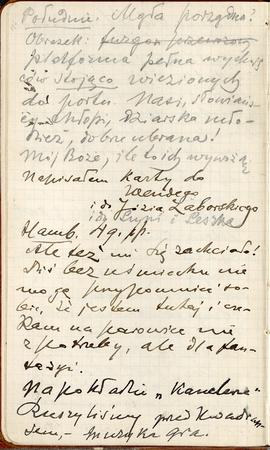 Południe. Mgła porządna!
Obrazek:
platforma pełna wych
ców stojąco wiezionych
do portu. Nasi, słowiańs
cy chłopi, dziarska mło
dzież, dobrze ubrana!
Mój Boże, ile to ich wywożą
Napisałem karty do
i do Józia Zaborskiego
i do i Leszka
Hamb. Ag. pp.
Ale też mi się zachciało!
Dziś bez uśmiechu nie
mogę przypomnieć so-
bie, że jestem tutaj i cze-
kam na parowiec nie
z potrzeby, ale dla fan-
tazyi.
Na pokładzie „
Ruszyliśmy przed kwadran
sem, – muzyka gra.